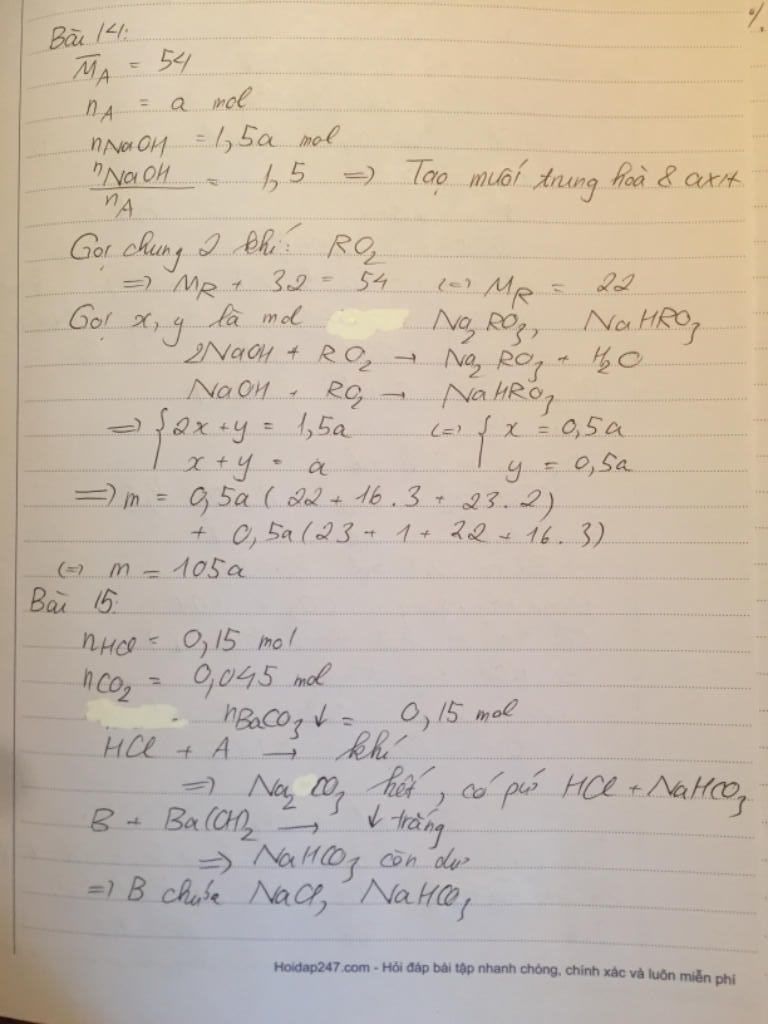 %.
Bài 14:
M̅A = 54
nA = a mol
nNaOH = 1,5a mol
nNaOH/nA = 1,5 => Tạo muối trung hoà & axit
Gọi chung 2 khí: RO2
=> MR + 32 = 54 (=> MR = 22
Gọi x, y là mol Na2RO3, NaHRO3
2NaOH + RO2 → Na2RO3 + H2O
NaOH + RO2 → NaHRO3
=> { 2x + y = 1,5a (=> { x = 0,5a
x + y = a y = 0,5a
=> m = 0,5a (22 + 16.3 + 23.2)
+ 0,5a (23 + 1 + 22 + 16.3)
(=> m = 105a
Bài 15:
nHCl = 0,15 mol
nCO2 = 0,045 mol
nBaCO3↓ = 0,15 mol
HCl + A → khí
=> Na2CO3 hết, có pứ HCl + NaHCO3
B + Ba(OH)2 → ↓ trắng
=> NaHCO3 còn dư
=> B chứa NaCl, NaHCO3
Hoidap247.com - Hỏi đáp bài tập nhanh chóng, chính xác và luôn miễn phí